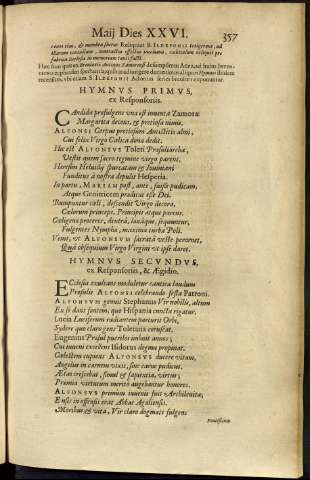 Maij Dies XXVI. 357
HYMNVS PRIMVS,
ex Responsoriis.
Candida præfulgens vna est inuenta Zamoræ
Margarita decens, & pretiosa nimis.
ALFONSI Corpus pretiosum Antistitis almi,
Cui felix Virgo Cœlica dona dedit.
Hic est ALFONSVS Toleti Præsul
Vestit quem sacro tegmine virgo parens.
Hæresim Heluidij spurcatam & Iouiniani
Funditus à nostra depulit Hesperia.
In partu, MARIAM post, ante, fuisse pudicam,
Atque Genitricem prædicat esse Dei.
cœli, descendit Virgo decora,
Cælorum princeps, Principe atque parens.
Cœligena proceres, dextrâ, læuâque, sequuntur,
Fulgentes Nympha, maxima turba Poli.
Venit, vt ALFONSVM sacratâ veste perornet,
Quâ obsequium Virgo Virgini vt ipse daret.
HYMNVS SECVNDVS,
ex Responsoriis, & Ægidio.
Ecclesia exultans moduletur cantica laudum
Præsulis ALFONSI celebrando festa Patroni.
ALFONSVM genuit Stephanus Vir nobilis, altum
Eu si dans fontem, quo Hispania cuncta rigatur.
Lucia Luciferum radiantem parturit Orbi,
Sydere quo claro gens Toletana coruscat.
Eugenius Præsul pueriles imbuit annos;
Cui iuueni excellens Isidorus dogma propinat.
Cœlestem cupiens ALFONSVS ducere vitam,
Angelus in carnem vixit, sine carne pudicus.
Ætas crescebat, simul & sapientia, virtus;
Præmia virtutum meritò augebantur honores.
ALFONSVS primum iuuenis fuit Archileuita,
Ensis in offensis erat Abbas Agaliensis.
Moribus & vita, Vir claro dogmate fulgens